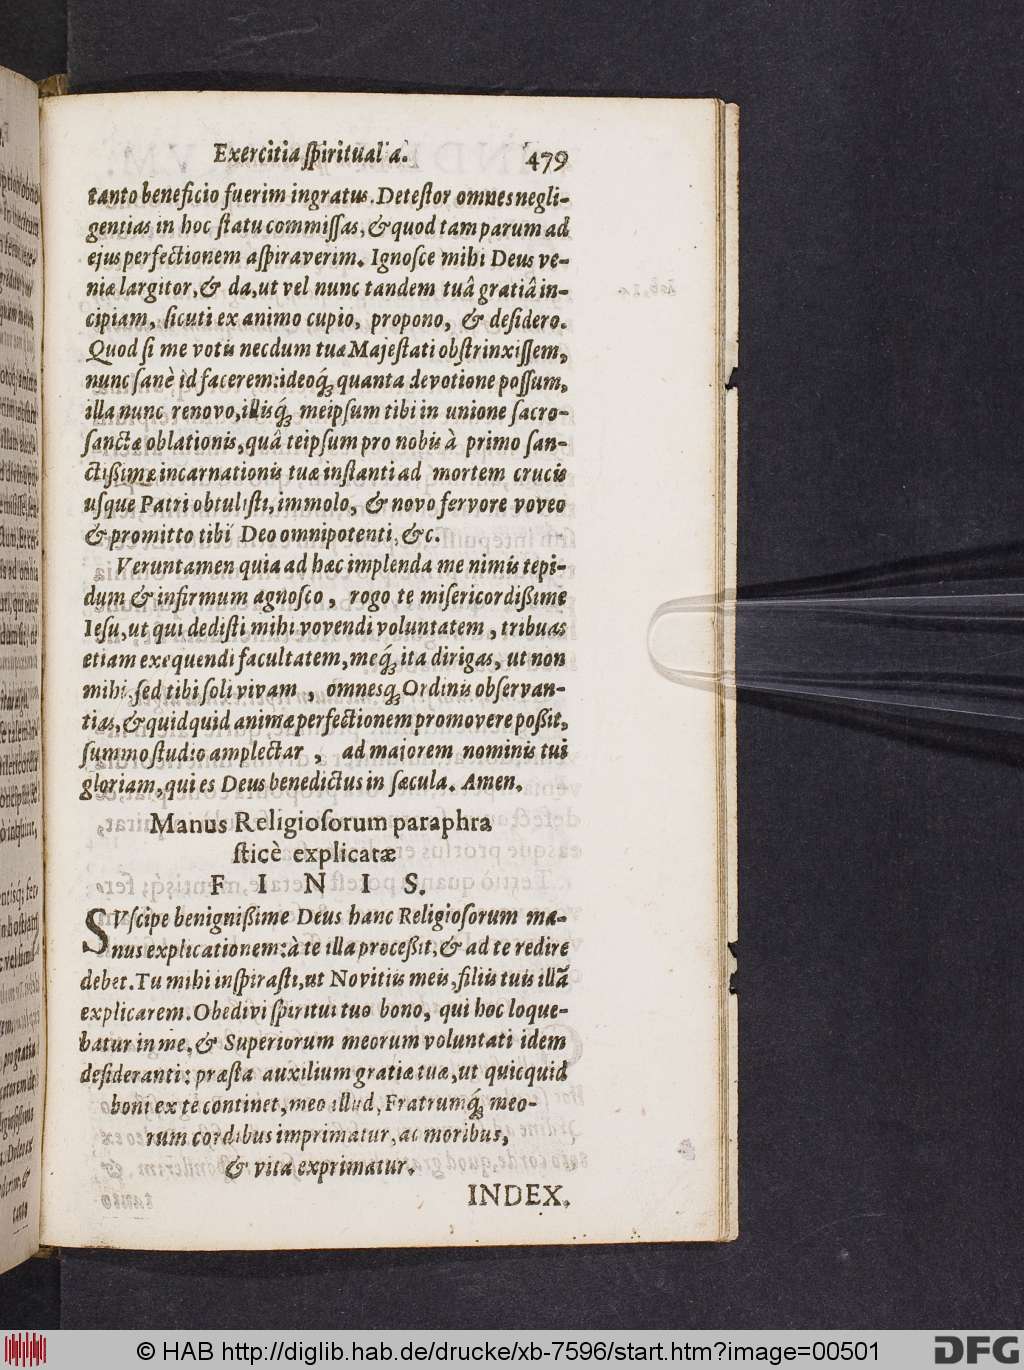 Exercitia ſpiritualia. 479
tanto beneficio fuerim ingratus. Deteſtor omnes negli-
gentias in hoc ſtatu commiſſas, & quod tam parum ad
ejus perfectionem aſpiraverim. Ignoſce mihi Deus ve-
niæ largitor, & da, ut vel nunc tandem tuâ gratiâ in-
cipiam, ſicuti ex animo cupio, propono, & deſidero.
Quod ſi me votis necdum tuæ Majeſtati obſtrinxiſſem,
nunc ſanè id facerem: ideoq́; quanta devotione poſſum,
illa nunc renovo, illisq́; meipſum tibi in unione ſacro-
ſanctæ oblationis, quâ teipſum pro nobis à primo ſan-
ctißimæ incarnationis tuæ inſtanti ad mortem crucis
uſque Patri obtuliſti, immolo, & novo fervore voveo
& promitto tibi Deo omnipotenti, &c.
Veruntamen quia ad hæc implenda me nimis tepi-
dum & infirmum agnoſco, rogo te miſericordißime
Ieſu, ut qui dediſti mihi vovendi voluntatem, tribuas
etiam exequendi facultatem, meq́; ita dirigas, ut non
mihi, ſed tibi ſoli vivam, omnesq́; Ordinis obſervan-
tias, & quidquid animæ perfectionem promovere poßit,
ſummo ſtudio amplectar, ad majorem nominis tui
gloriam, qui es Deus benedictus in ſæcula. Amen.
Manus Religioſorum paraphra
ſticè explicatæ
F I N I S.
SVſcipe benignißime Deus hanc Religioſorum ma-
nus explicationem: à te illa proceßit, & ad te redire
debet. Tu mihi inſpiraſti, ut Novitiis meis, filiis tuis illã
explicarem. Obedivi ſpiritui tuo bono, qui hoc loque-
batur in me, & Superiorum meorum voluntati idem
deſideranti: præſta auxilium gratiæ tuæ, ut quicquid
boni ex te continet, meo illud, Fratrumq́; meo-
rum cordibus imprimatur, ac moribus,
& vita exprimatur.
INDEX.
© HAB http://diglib.hab.de/drucke/xb-7596/start.htm?image=00501
DFG